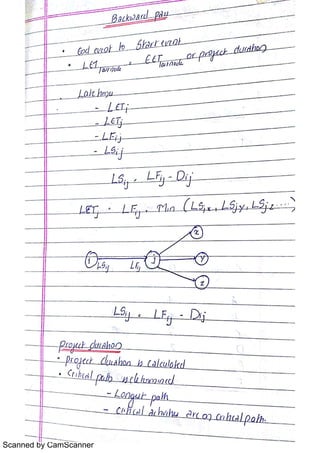 Backward pass
• End event to Start event
• LET last node = EET last node or project duration
• Late times
- LETi
- LETj
- LFij
- LSij
LSij = LFij - Dij
LETj = LFij = Min (LSjx, LSjy, LSjz ....)
x
i LSij LFij j y
z
LSij = LFij - Dij
project duration
• project duration is calculated
• Critical path is determined
- Longest path
- critical activities are on critical path.
Scanned by CamScanner